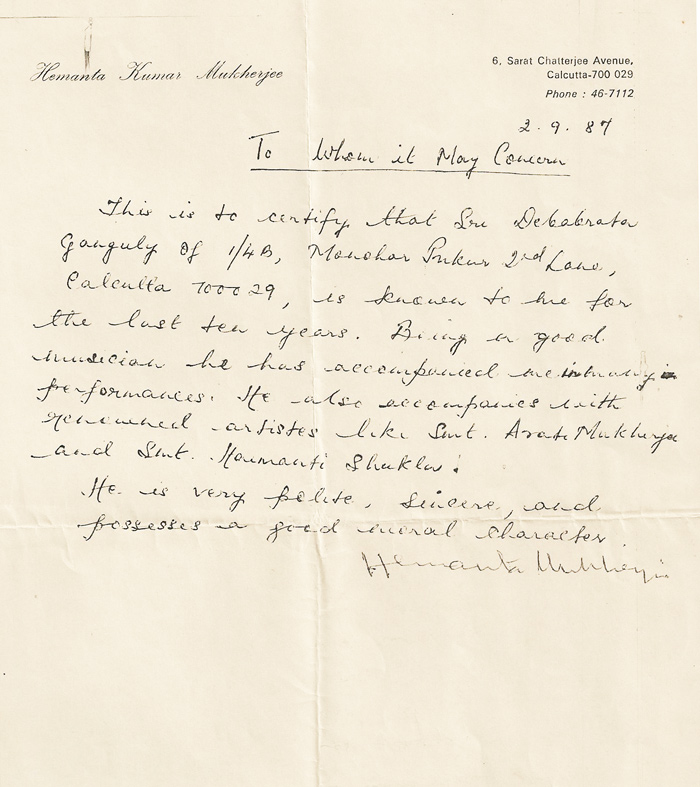 Hemanta Kumar Mukherjee
6, Sarat Chatterjee Avenue,
Calcutta-700 029
Phone : 46-7112
2.9.87
To Whom it May Concern
This is to certify that Sri Debabrata
Ganguly of 1/4B, Monohar Pukur 2nd Lane,
Calcutta 700029, is known to me for
the last ten years. Being a good
musician he has accompanied me in many
performances. He also accompanies with
renowned artistes like Smt. Arati Mukherjee
and Smt. Haimanti Shukla.
He is very polite, sincere, and
possesses a good moral character.
Hemanta Mukherjee